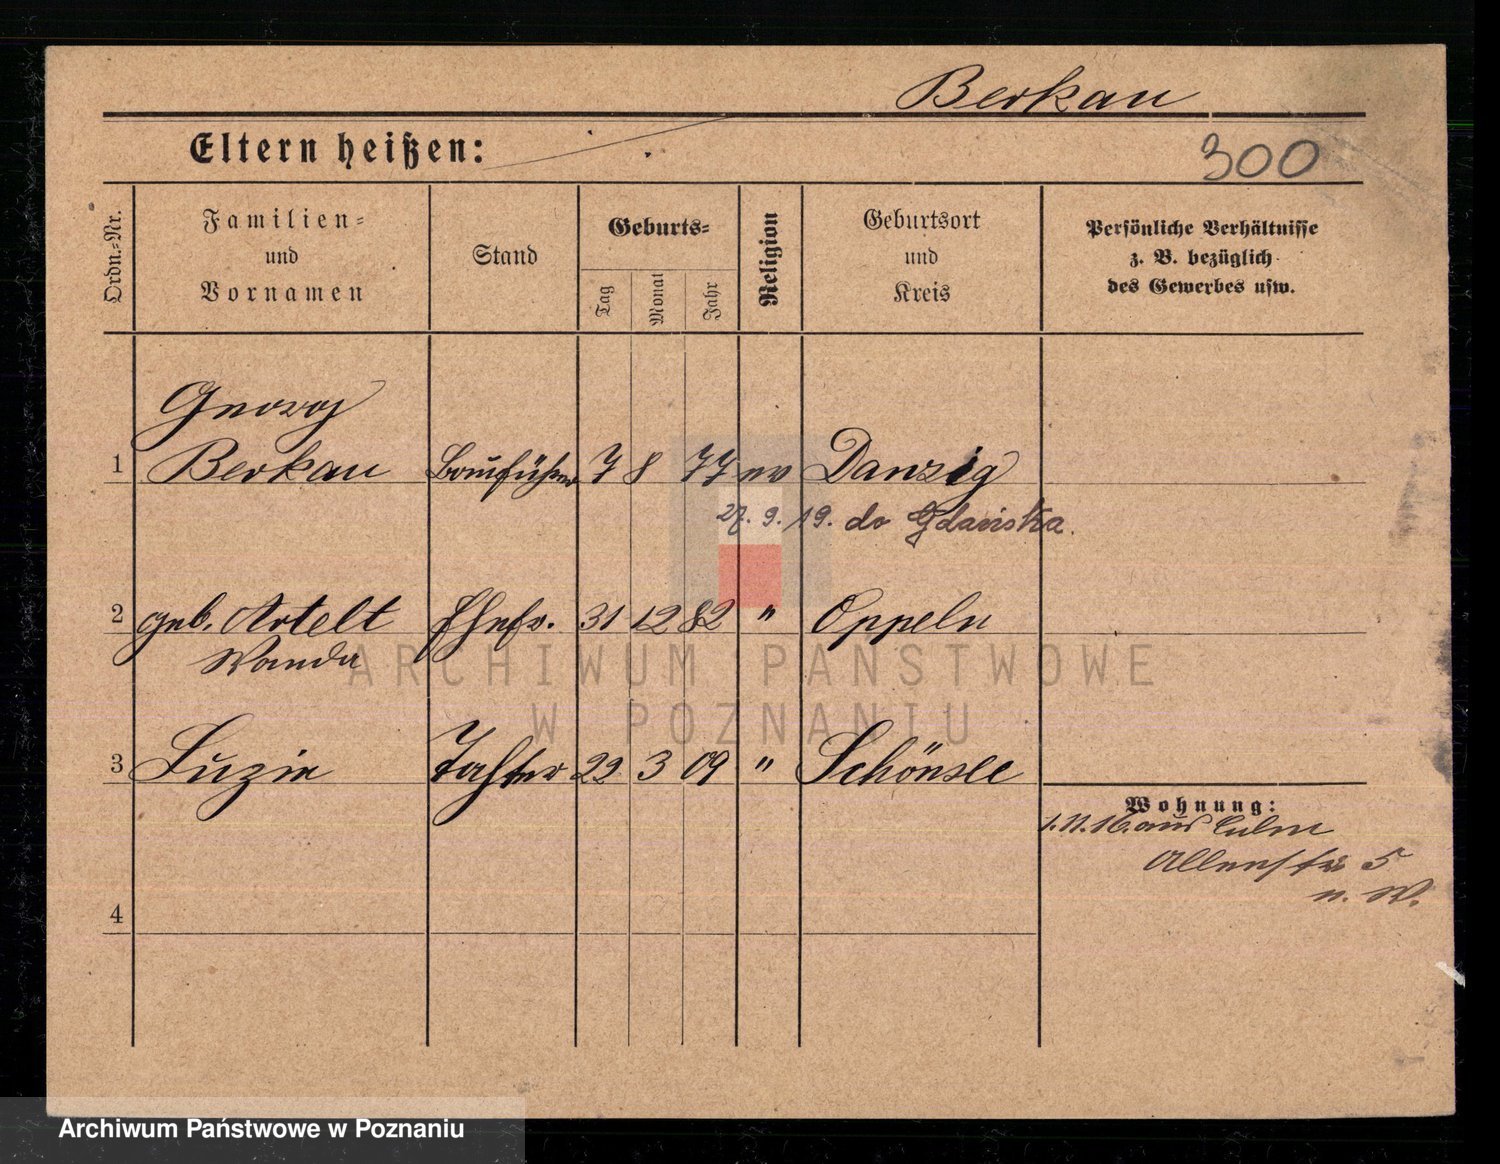 Berkau
Eltern heißen:
300
Ordn.-Nr.
Familien-
und
Vornamen
Stand
Geburts-
Tag
Monat
Jahr
Religion
Geburtsort
und
Kreis
Persönliche Verhältnisse
z. B. bezüglich
des Gewerbes usw.
Georg
1 Berkau Bauführer 7 8 77 ev Danzig
27. 9. 19. do Gdańska.
2 geb. Artelt Ehefr. 31 12 82 " Oppeln
Wanda
3 Luzie Tochter 22 3 09 " Schönsee
Wohnung:
1. 11. 16. aus Culm
Allenstr 5
n. W.
4
ARCHIWUM PAŃSTWOWE
W POZNANIU
Archiwum Państwowe w Poznaniu